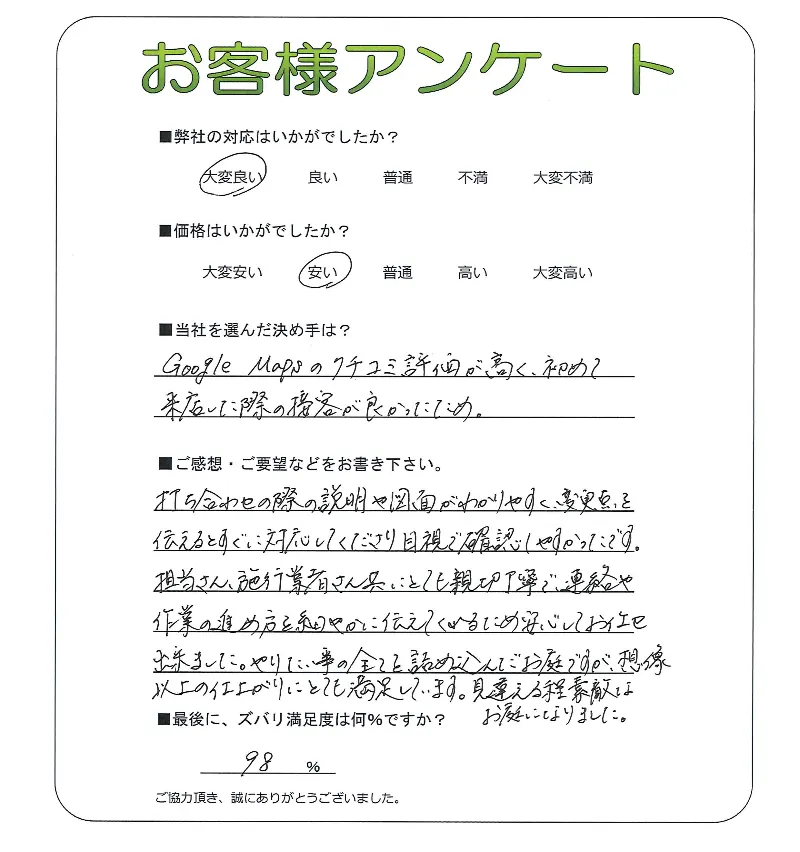 お客様アンケート
■弊社の対応はいかがでしたか？
大変良い 良い 普通 不満 大変不満
■価格はいかがでしたか？
大変安い 安い 普通 高い 大変高い
■当社を選んだ決め手は？
Google Mapsのクチコミ評価が高く、初めて
来店した際の接客が良かったため。
■ご感想・ご要望などをお書き下さい。
打ち合わせの際の説明や図面がわかりやすく、変更点を
伝えるとすぐに対応してくださり目視で確認しやすかったです。
担当さん、施行業者さん共にとても親切丁寧で、連絡や
作業の進め方を細やかに伝えてくれるため安心してお任せ
出来ました。やりたい事の全てを詰め込んだお庭ですが、想像
以上の仕上がりにとても満足しています。見違える程素敵な
お庭になりました。
■最後に、ズバリ満足度は何%ですか？
98 %
ご協力頂き、誠にありがとうございました。